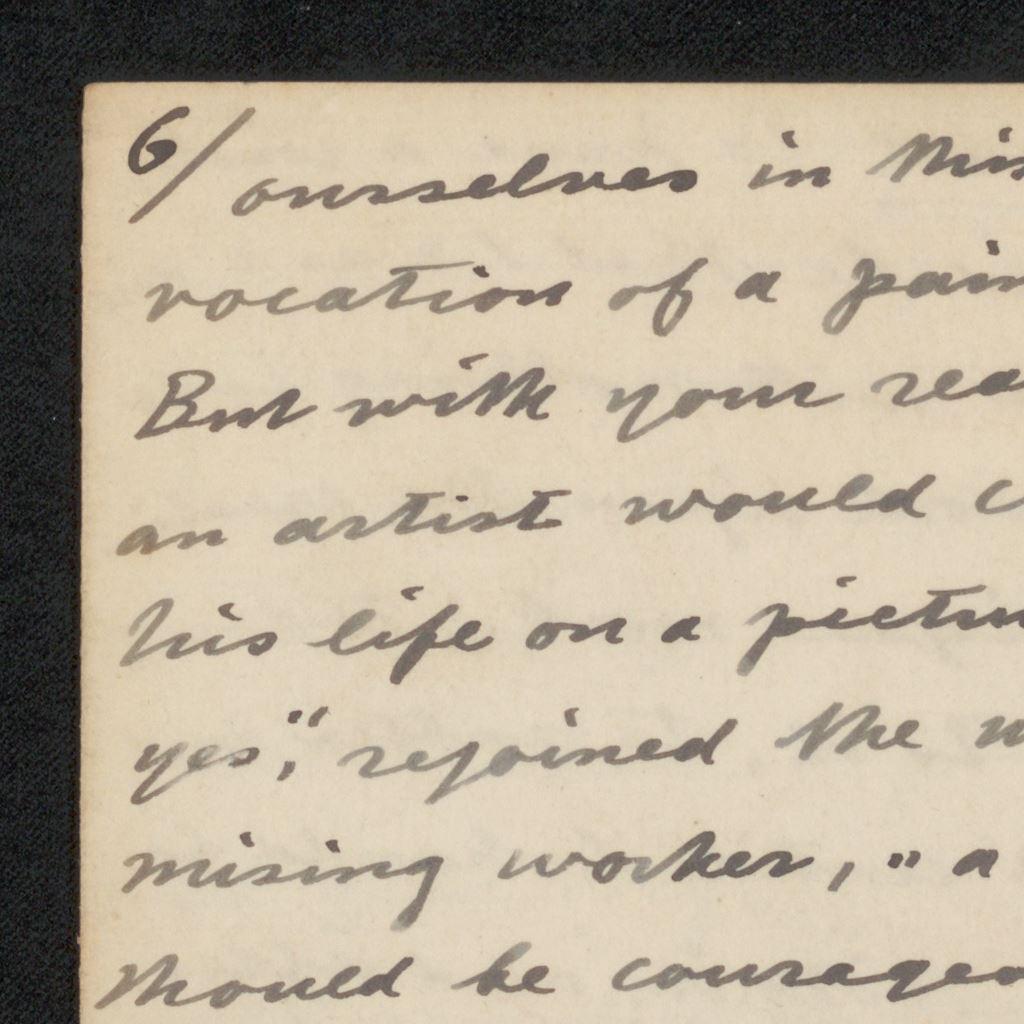 6/ ourselves in this
vocation of a pain
But with your rea
an artist would c
his life on a pictu
yes", rejoined the
mising worker, "a
should be courageo